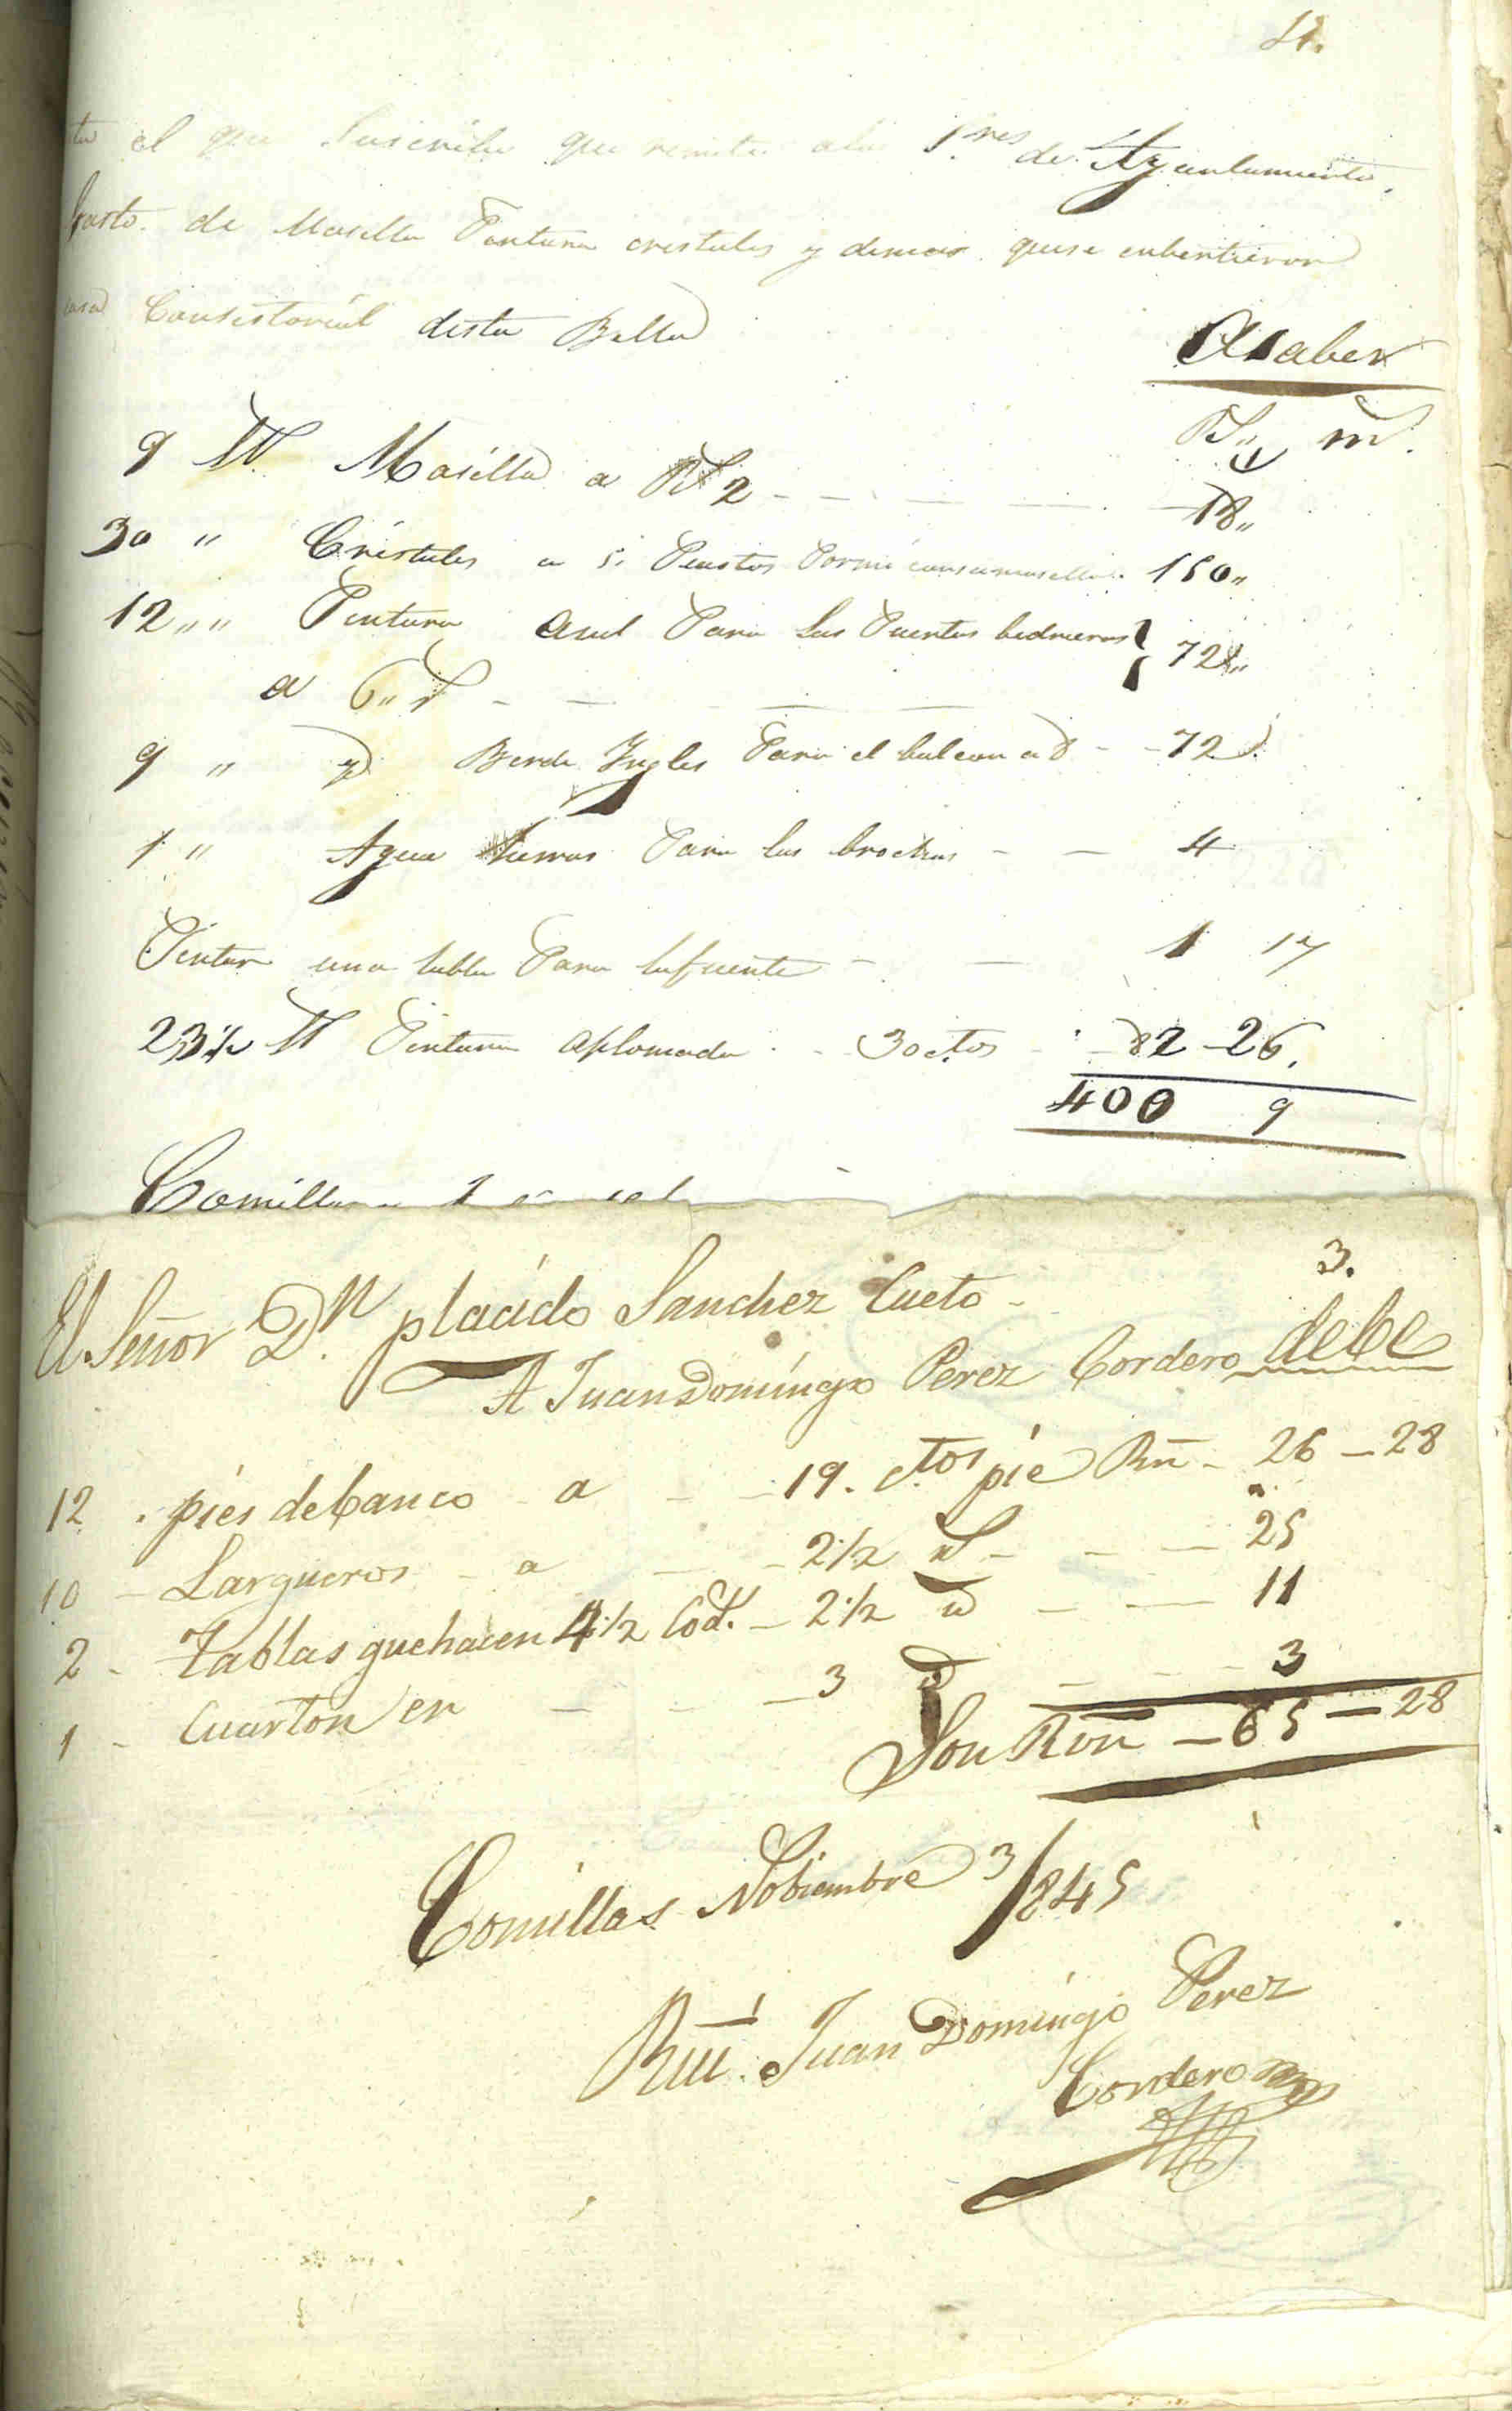 11.
ta el que Suscribe que remite alos S.res de Ayuntamiento.
Gasto. de Masilla Pintura cristales y demas quese enbentieron
casa Consistorial desta Billa
Asaber
Rs m.
9 lb Masilla a Rs 2 - - - - 18"
30 " Cristales a 5. Puestos Pormi consumasilla. 150"
12 "" Pintura Asul Para las Puertas bedrieras } 72"
a 6" rs - - - -
9 " yd Berde Yngles Para el balcon a 8 - - 72
1 " Agua Para las brochas - - 4
Pintar una tabla Para lafuente - - 1 17
23½ lb Pintura aplomada - 30 ctos - 82 - 26.
400 9
Comillas
3.
El Señor Dn. placido Sanchez Cueto -
A Juan Domingo Perez Cordero debe
12 . pies debanco - a - - 19. ctos pie Rn - 26 - 28
10 - Largueros - a - - 2½ rs - - - 25
2 - Tablas quehacen 4½ Cod.s - 2½ id - - 11
1 - Cuarton en - - - 3 id - - 3
Son Rvn - 65 - 28
Comillas Nobiembre 3/845
Juan Domingo Perez
Cordero